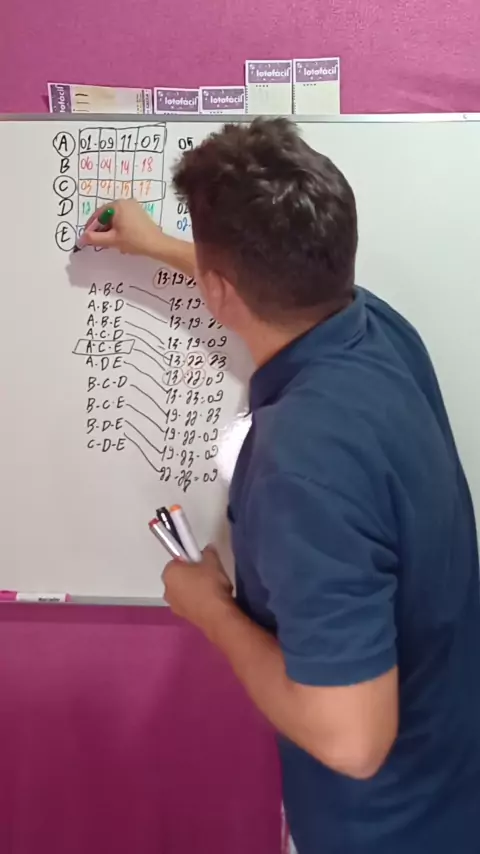 lotofácil
lotofácil
lotofácil
lotofácil
A 01-09-11-05 05
B 06-04-14-18
C 03-07-15-17
D 12
E
13-19
A-B-C 13-19
A-B-D 13-19-23
A-B-E 13-19-09
A-C-D 13-22-23
A-C-E 13-22-09
A-D-E 13-23-09
B-C-D 19-22-23
B-C-E 19-22-09
B-D-E 19-23-09
C-D-E 22-23-09